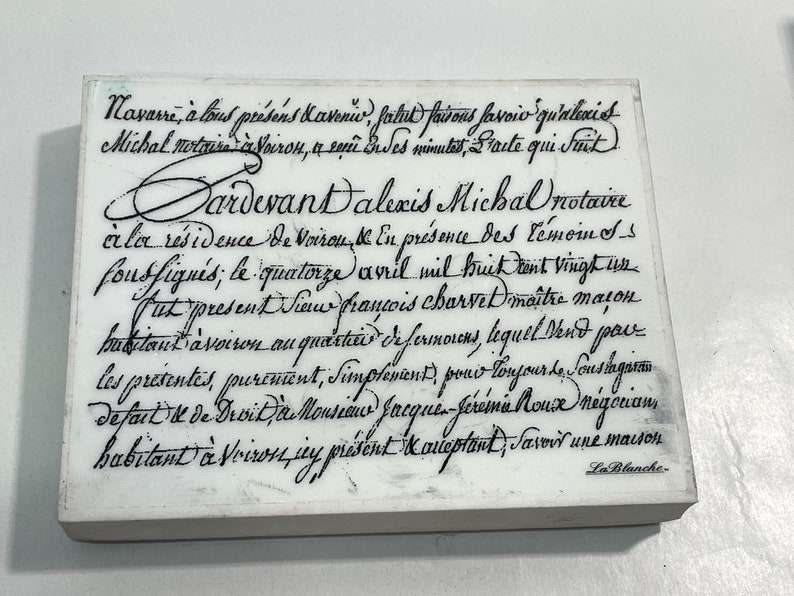 Navarre, à tous présens & avenir, salut faisons savoir qu'alexis
Michal notaire à Voiron, a reçu En ses minutes, L'acte qui Suit
Pardevant alexis Michal notaire
à la résidence de Voiron, & En présence des témoins
soussignés, le quatorze avril mil huit cent vingt un
fut present Sieur françois charvet maître maçon
habitant à voiron au quartier de sermorens, lequel Vend par
les présentes, purement, Simplement, pour Toujours Sous la garantie
de fait & de Droit, à Monsieur Jacques-Jérémie Roux négociant
habitant à Voiron, icy présent & acceptant, Savoir une maison
LaBlanche